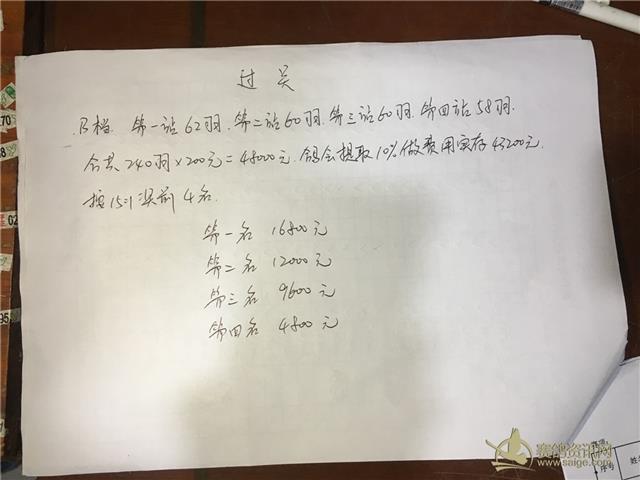 过关
B档 第一站62羽、第二站60羽、第三站60羽、第四站58羽.
合共240羽×200元=48000元.鸽会提取10%做费用实存43200元.
按15:1奖前4名.
第一名 16800元
第二名 12000元
第三名 9600元
第四名 4800元
赛鸽资讯网
www.saige.com
序号
姓名